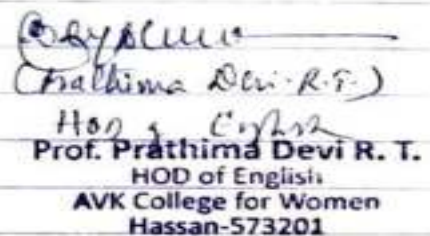 (Prathima Devi. R.T.)
HOD of English
Prof. Prathima Devi R. T.
HOD of English
AVK College for Women
Hassan-573201